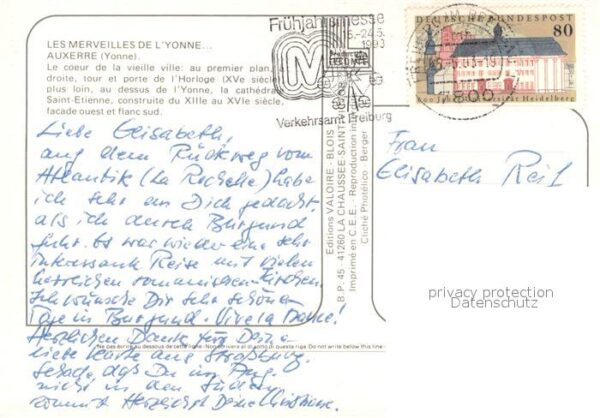 LES MERVEILLES DE L'YONNE...
AUXERRE (Yonne).
Le coeur de la vieille ville: au premier plan,
droite, tour et porte de l'Horloge (XVe siècle)
plus loin, au dessus de l'Yonne, la cathédra
Saint-Etienne, construite du XIIIe au XVIe siècle,
facade ouest et flanc sud.
Liebe Elisabeth,
auf dem Rückweg vom
Atlantik (La Rochelle) habe
ich sehr an Dich gedacht,
als ich durch Burgund
fuhr. Es war wieder eine sehr
interessante Reise mit vielen
herrlichen romanischen Kirchen.
Ich wünsche Dir sehr schöne
Tage in Burgund. Vive la France!
Herzlichen Dank für Deine
liebe Karte aus Straßburg.
Schade, daß Du im Aug.
nicht in den Süden
kommst. Herzlichst Deine Christiane.
Ne rien écrire au dessous de cette ligne. Non scrivere al disotto di questa riga. Do not write below this line
Editions VALOIRE - BLOIS
B.P. 45 - 41260 LA CHAUSSEE-SAINT-
Imprimé en C.E.E. - Reproduction in
Cliché Photélico - Berger
Frühjahrsmesse
15.-24.5.
1993
M
Verkehrsamt Freiburg
DEUTSCHE BUNDESPOST
80
600 Jahre Universität Heidelberg
Frau
Elisabeth Reif
privacy protection
Datenschutz